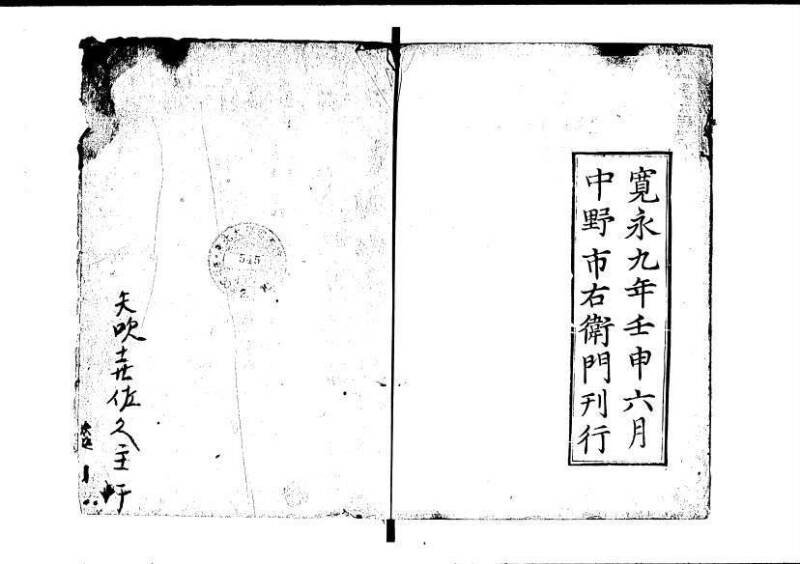 寛永九年壬申六月
中野市右衛門刊行
545
矢吹㐂佐久主